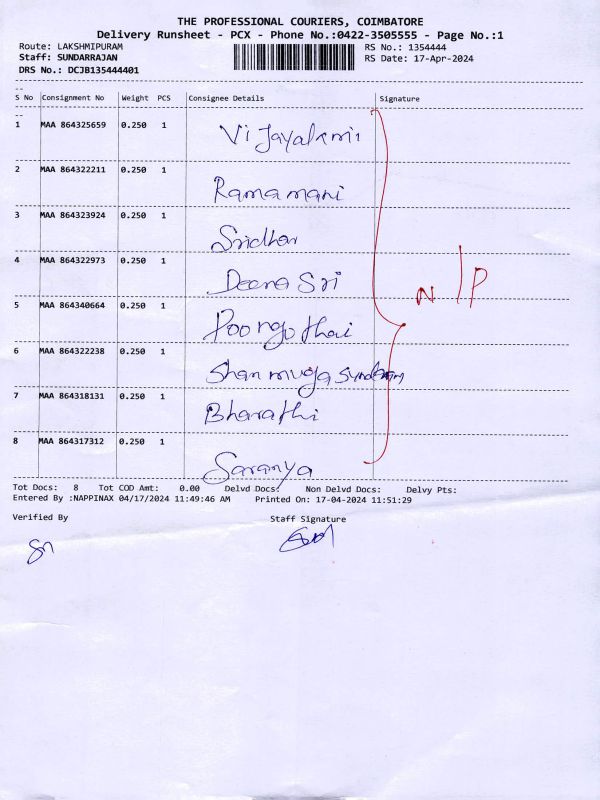 THE PROFESSIONAL COURIERS, COIMBATORE
Delivery Runsheet - PCX - Phone No.:0422-3505555 - Page No.:1
Route: LAKSHMIPURAM RS No.: 1354444
Staff: SUNDARRAJAN RS Date: 17-Apr-2024
DRS No.: DCJB135444401
S No Consignment No Weight PCS Consignee Details Signature
1 MAA 864325659 0.250 1 Vijayalaxmi
2 MAA 864322211 0.250 1 Ramamani
3 MAA 864323924 0.250 1 Sridhar
4 MAA 864322973 0.250 1 Deena Sri
N/P
5 MAA 864340664 0.250 1 Poongothai
6 MAA 864322238 0.250 1 Shanmuga Sundaram
7 MAA 864318131 0.250 1 Bharathi
8 MAA 864317312 0.250 1 Saranya
Tot Docs: 8 Tot COD Amt: 0.00 Delvd Docs: Non Delvd Docs: Delvy Pts:
Entered By :NAPPINAX 04/17/2024 11:49:46 AM Printed On: 17-04-2024 11:51:29
Verified By Staff Signature